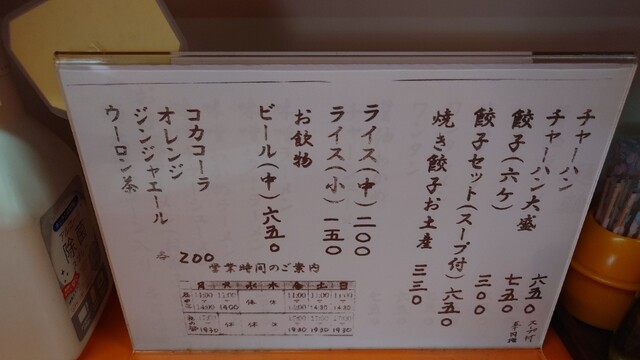 チャーハン 六五〇
チャーハン大盛 七五〇
餃子(六ケ) 三〇〇
餃子セット(スープ付) 六五〇
焼き餃子お土産 三三〇
ライス(中) 二〇〇
ライス(小) 一五〇
お飲物
ビール(中) 六五〇
コカコーラ
オレンジ
ジンジャエール
ウーロン茶
各 200
営業時間のご案内
月 火 水 木 金 土 日
11:00 11:00 休 休 11:00 11:00 11:00
14:00 14:00 14:30 14:30
17:00 休 休 休 17:00 17:00 17:00
19:30 19:30 19:30 19:30
除菌